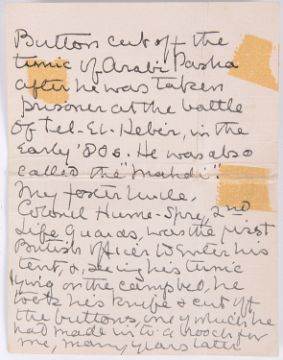 Button cut off the
tunic of Arabi Pasha
after he was taken
prisoner at the battle
of Tel-El-Kebir, in the
Early '80s. He was also
called the "Mahdi".
My foster Uncle,
Colonel Hume-Spry, 2nd
Life Guards, was the first
British officer to enter his
tent, &, seeing his tunic
lying on the campbed, he
took his knife & cut off
the buttons, one of which he
had made into a brooch for
me, many years later